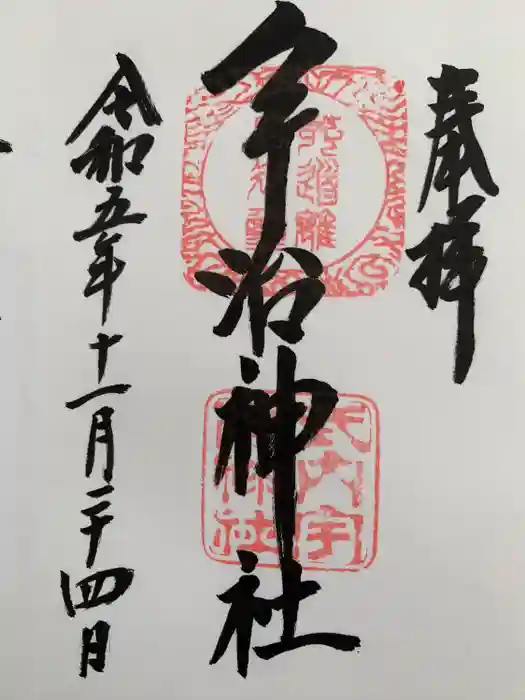 奉拝
宇治神社
令和五年十一月二十四日
式内宇
治神社